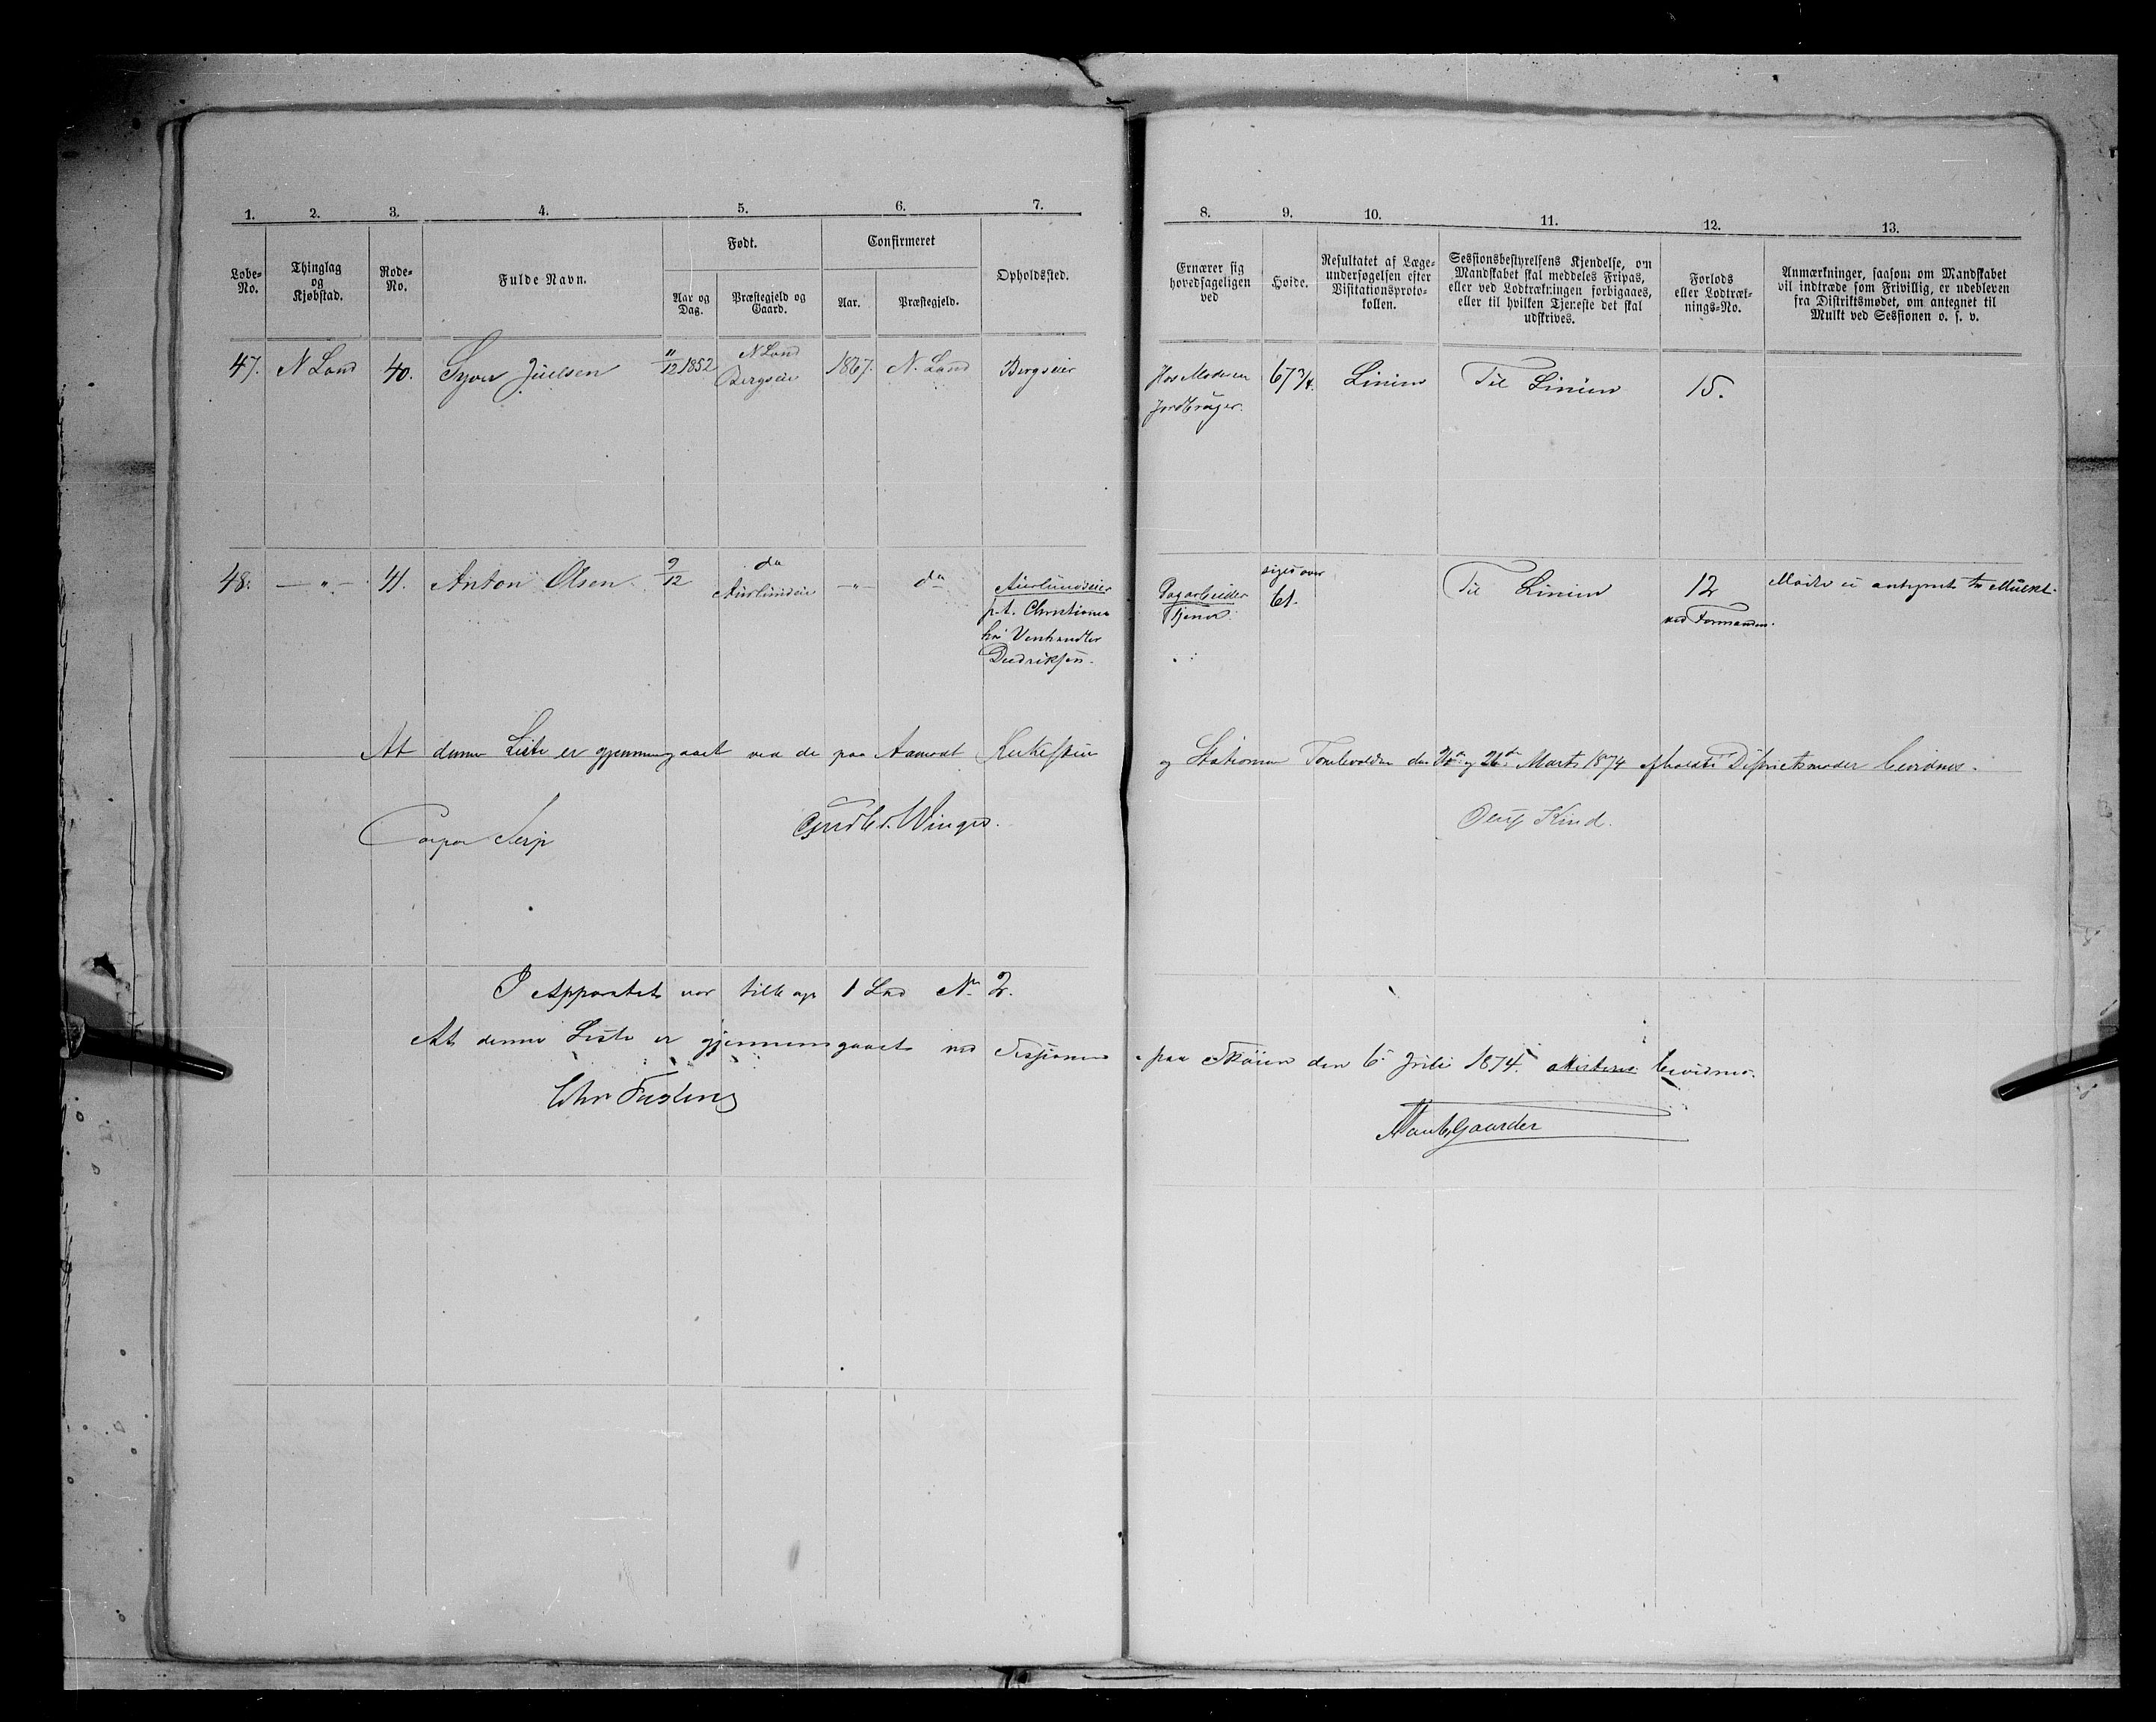 1. 2. 3. 4. 5. 6. 7.
Løbe-No.
Thinglag og Kjøbstad.
Rode-No.
Fulde Navn.
Født.
Aar og Dag.
Præstegjeld og Gaard.
Confirmeret
Aar.
Præstegjeld.
Opholdssted.
8. 9. 10. 11. 12. 13.
Ernærer sig hovedsageligen ved
Høide.
Resultatet af Læge-undersøgelsen efter Visitationsproto-kollen.
Sessionsbestyrelsens Kjendelse, om Mandskabet skal meddeles Fripas, eller ved Lodtrækningen forbigaaes, eller til hvilken Tjeneste det skal udskrives.
Forlods eller Lodtræk-nings-No.
Anmærkninger, saasom om Mandskabet vil indtræde som Frivillig, er udebleven fra Distriktsmødet, om antegnet til Mulkt ved Sessionen o. s. v.
47. N Land 40. Syver Juelsen 11/12 1852 N Land Bergseie 1867. N. Land Bergseier
Hos Moderen Jordbruger. 67 3/4. Linien Til Linien 15.
48. — " — 41. Anton Olsen. 9/12 do Aurlundeie — " — do Aurlundseier
p.t. Christiania
hos Venhandler
Diedriksen.
Dagarbeider
Tjener. siges over 61. Til Linien 12 ved Formanden. Mødte ei antegnet til Mulkt.
At denne Liste er gjennemgaaet ved de paa Aamodt Kirkestuen og Stationen Tomlevolden den 25de og 26de Marts 1874 afholdte Districtsmøder bevidnes.
Winger. Oluf Kind.
I Apparatet var tilbage 1 Lod No 2.
At denne Liste er gjennemgaaet ved Sessionen paa Skøien den 6 Juli 1874. bevidnes.
Chr Fasting
Gaarder